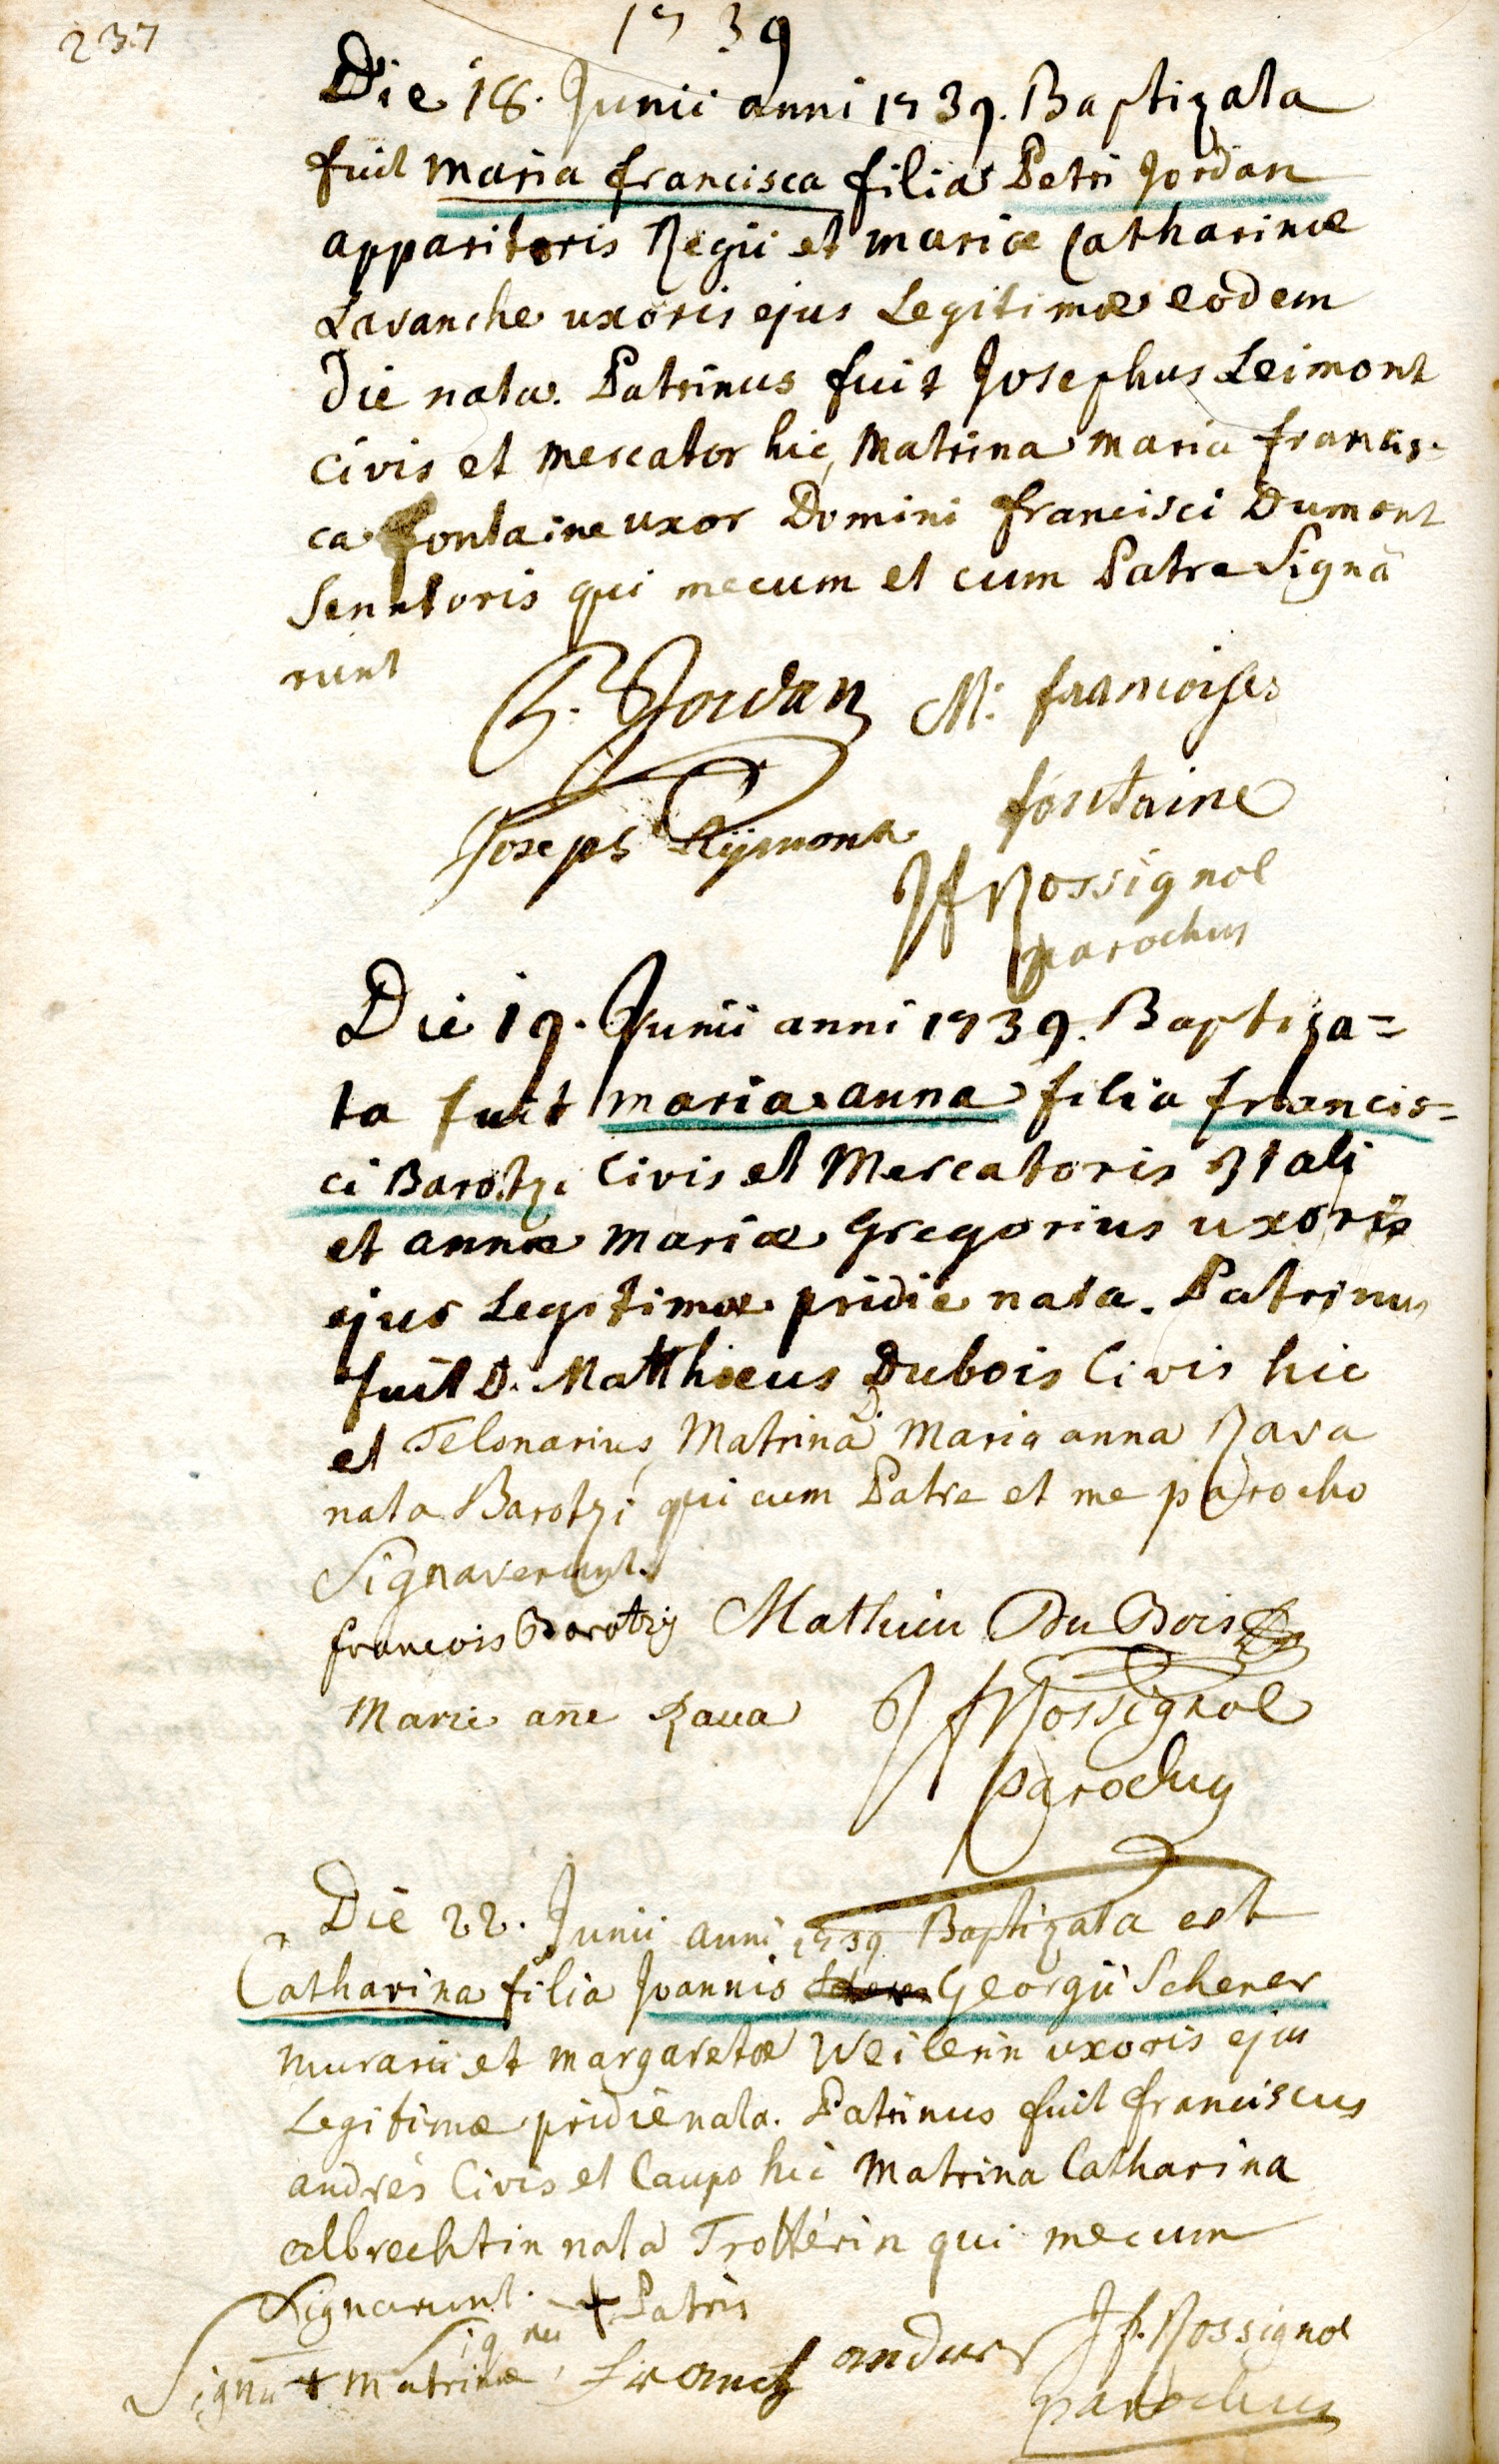 237
1739
Die 18. Junii anni 1739. Baptizata
fuit maria francisca filia Petri Jordan
apparitoris Regii et mariæ Catharinæ
Lavanche uxoris ejus Legitimæ eodem
Die nata. Patrinus fuit Josephus Leimont
civis et mercator hic, Matrina maria francis-
ca fontaine uxor Domini francisci Dumont
Senatoris qui mecum et cum Patre Signa
runt
P. Jordan M: francoises
fontaine
Joseph Leÿmont
JfRossignol
parochus
Die 19. Junii anni 1739. Baptiza=
ta fuit maria anna filia francis=
ci Barotzi Civis et Mercatoris Itali
et annæ mariæ Gregorius uxoris
ejus Legitimæ pridie nata. Patrinus
fuit D. Matthæus Dubois Civis hic
et Telonarius, Matrina D. Maria anna Rava
nata Barotzi qui cum Patre et me parocho
Signaverunt.
francois Barotzij Mathieu Du Bois
Marie añe Raua JfRossignol
parochus
Die 22. Junii anni 1739 Baptizata est
Catharina filia Joannis Georgii Scherer
murarii et margaretæ Weilerin uxoris ejus
Legitimæ pridie nata. Patrinus fuit franciscus
andrés Civis et Caupo hic Matrina Catharina
albrechtin nata Trottérin qui mecum
Signarunt. Signũ + Patris
Signũ + Matrinæ, frantz andres Jf. Rossignol
parochus